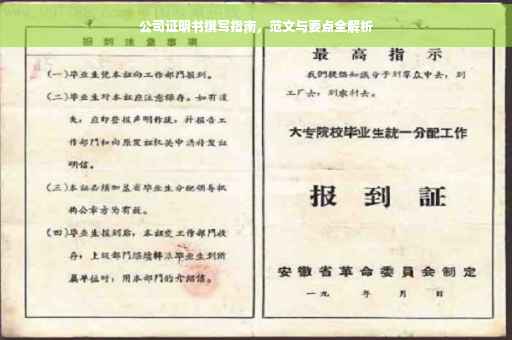 公司证明书撰写指南，范文与要点全解析
报到注意事项
(一)毕业生凭本证向工作部门报到。
(二)毕业生对本证应注意保存。如有遗
失，应即登报声明作废，并报告工
作部门和向原发证机关申请补发证
明信。
(三)本证必须加盖省毕业生分配领导机
构公章方为有效。
(四)毕业生报到后，本证交工作部门收
存；上级部门继续转派毕业生到所
属单位时，用本部门的介绍信。
最高指示
我们提倡知识分子到群众中去，到
工厂去，到农村去。
大专院校毕业生统一分配工作
报到证
安徽省革命委员会制定
一九 年 月 日